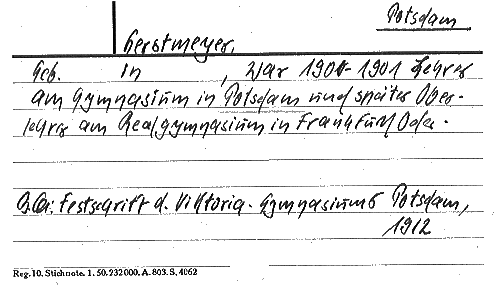 Potsdam
Gerstmeyer,
Geb. in , war 1900-1901 Lehrer
am Gymnasium in Potsdam und später Ober-
lehrer am Realgymnasium in Frankfurt Oder.
Festschrift d. Viktoria-Gymnasiums Potsdam,
1912
Reg. 10. Stichnote. 1. 50. 232000. A. 803. S. 4062